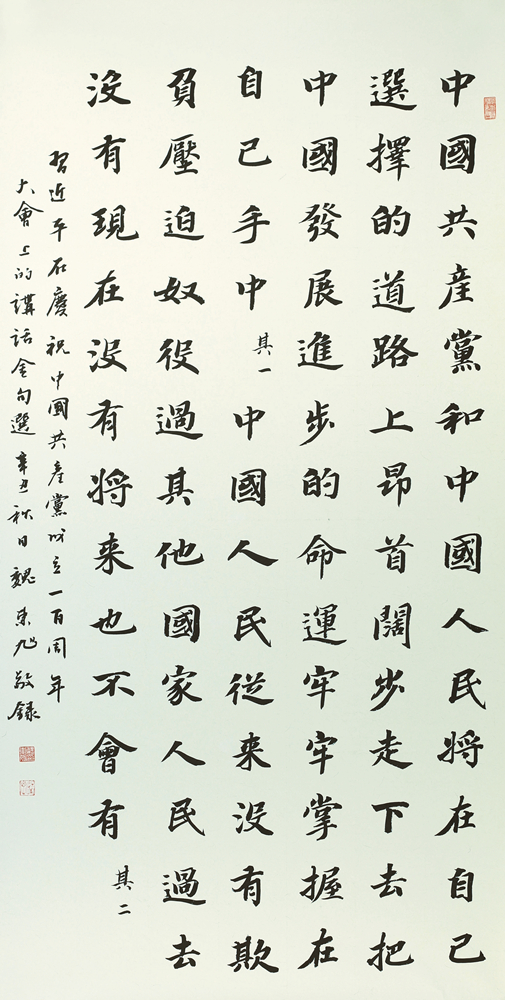 中國共産黨和中國人民將在自己
選擇的道路上昂首闊步走下去把
中國發展進步的命運牢牢掌握在
自己手中其一中國人民從来没有欺
負壓迫奴役過其他國家人民過去
没有現在没有將来也不會有其二
習近平在慶祝中國共產黨成立一百周年
大會上的講話金句選辛丑秋日魏東旭敬錄